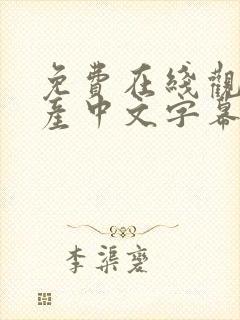 免費在綫觀
産中文字幕
李渠褒